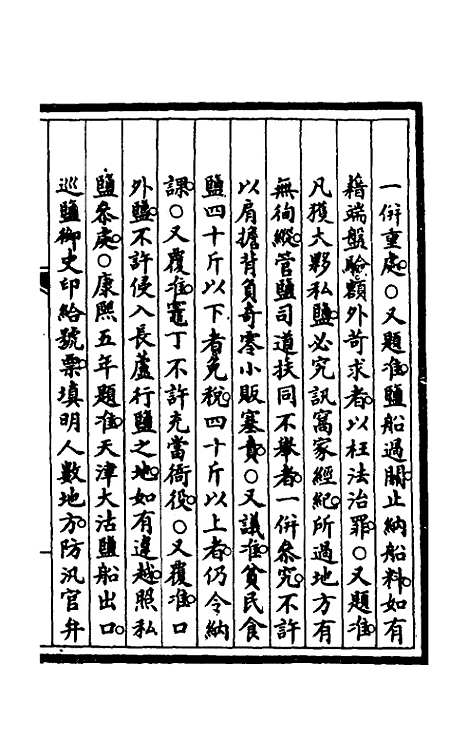 一倂重處○又題准鹽船過關止納船料如有
藉端盤驗額外苛求者以枉法治罪○又題准
凡獲大夥私鹽必究訊窩家經紀所過地方有
無徇縱管鹽司道扶同不舉者一倂叅究不許
以肩擔背負奇零小販塞責○又議准貧民食
鹽四十斤以下者免稅四十斤以上者仍令納
課○又覆准竈丁不許充當衙役○又覆准口
外鹽不許侵入長蘆行鹽之地如有違越照私
鹽叅處○康熙五年題准天津大沽鹽船出口
巡鹽御史印給號票填明人數地方防汛官弁